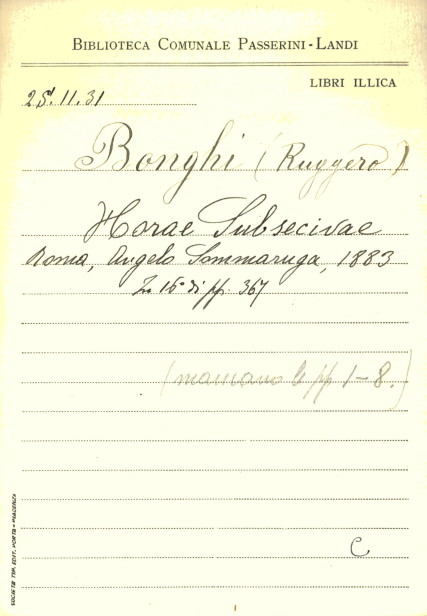 BIBLIOTECA COMUNALE PASSERINI-LANDI
LIBRI ILLICA
25.11.31
Bonghi (Ruggero)
Horae Subsecivae
Roma, Angelo Sommaruga, 1883
In 16° di pp. 367
(mancano le pp 1-8.)
C
SOCIETÀ TIP. EDIT. PORTA - PIACENZA